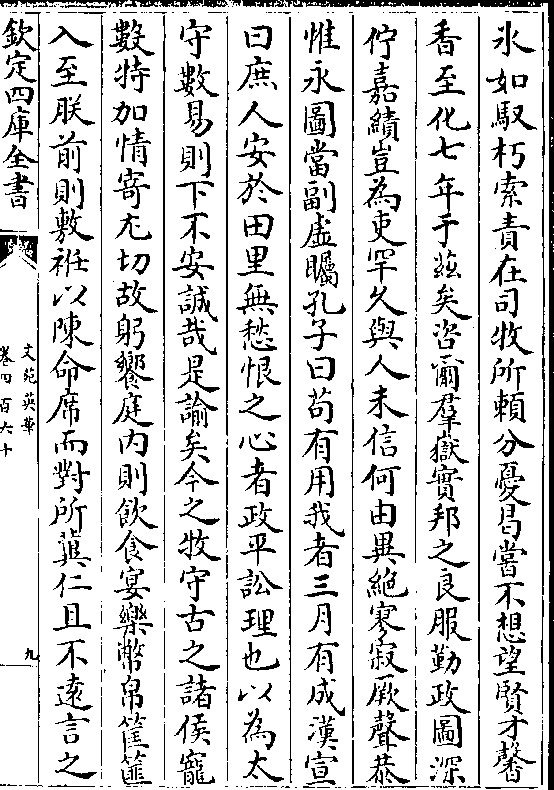 氷如馭朽索責在司牧所頼分憂曷當不想望賢才馨
香至化七年于茲矣咨爾羣嶽實邦之良服勤政圖深
佇嘉績豈為吏罕久與人未信何由異絶寥寂厥聲恭
惟永圖當副虛矚孔子曰苟有用我者三月有成漢宣
曰庶人安於田里無愁恨之心者政平訟理也以為太
守數易則下不安誠哉是諭矣今之牧守古之諸侯寵
數特加情寄尤切故躬饗庭内則飲食宴樂幣帛筐篚
入至朕前則敷袵以陳命席而對所冀仁且不逺言之
欽定四庫全書
文苑英華
卷四百六十
九